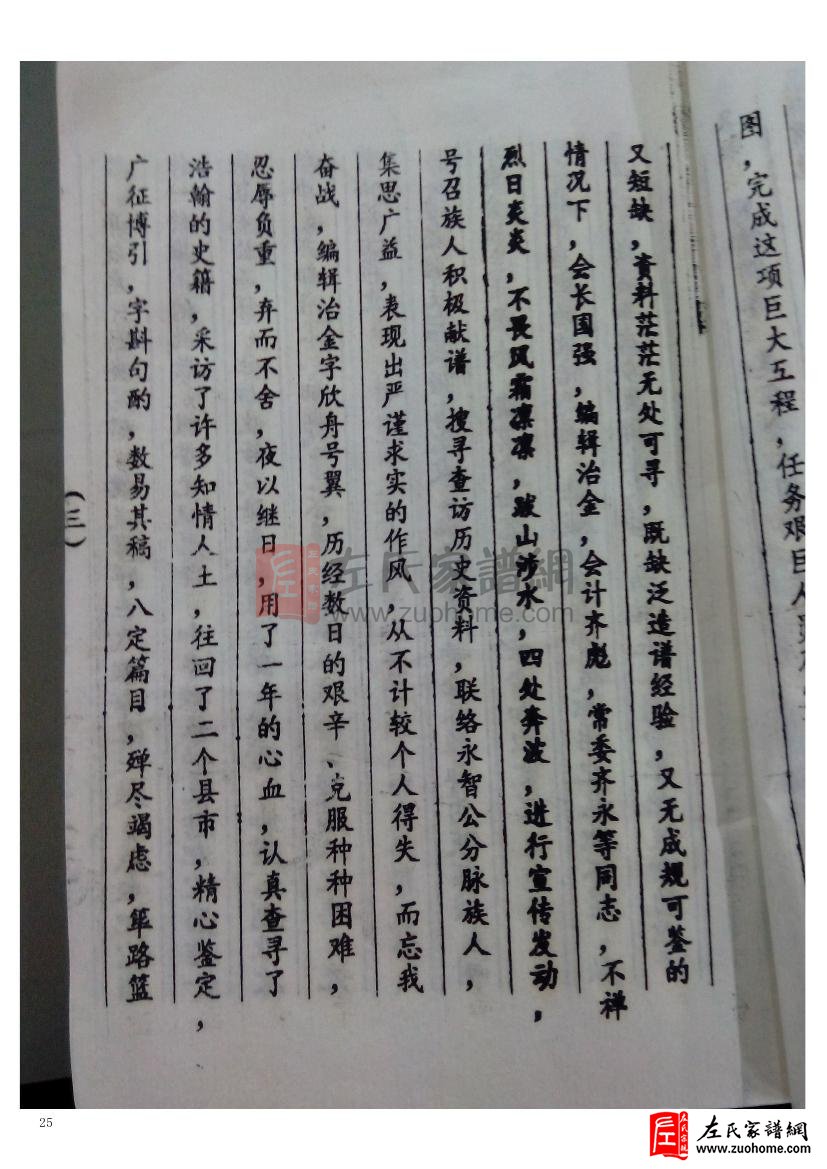 图，完成这项巨大工程，任务艰巨人
又短缺，资料茫茫无处可寻，既缺泛造谱经验，又无成规可鉴的
情况下，会长国强，编辑治金，会计齐彪，常委齐永等同志，不禅
烈日炎炎，不畏风霜凛凛，跋山涉水，四处奔波，进行宣传发动，
号召族人积极献谱，搜寻查访历史资料，联络永智公分脉族人，
集思广益，表现出严谨求实的作风，从不计较个人得失，而忘我
奋战，编辑治金字欣舟号翼，历经数日的艰辛、克服种种困难，
忍辱负重，弃而不舍，夜以继日，用了一年的心血，认真查寻了
浩瀚的史籍，采访了许多知情人士，往回了二个县市，精心鉴定，
广征博引，字斟句酌，数易其稿，八定篇目，殚尽竭虑，筚路篮
（三）
左氏家譜網
www.zuohome.com
25
左氏家譜網
www.zuohome.com